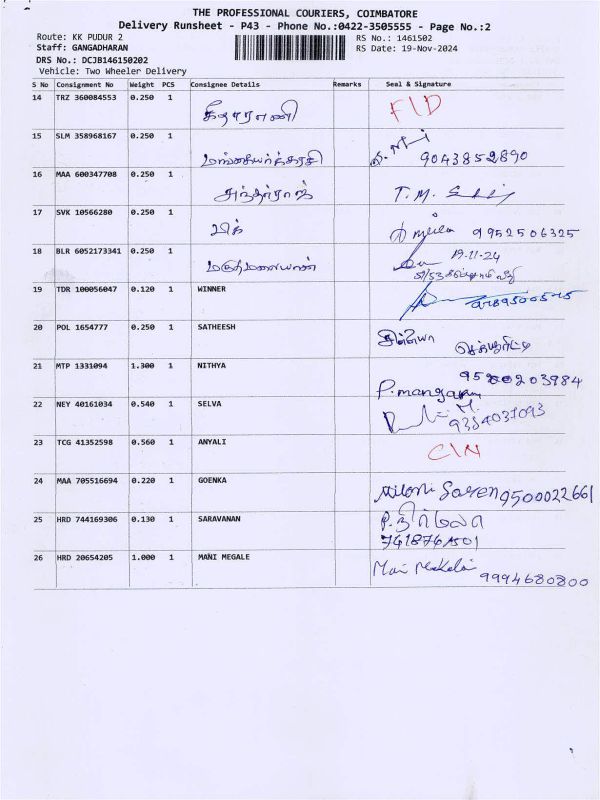 THE PROFESSIONAL COURIERS, COIMBATORE
Delivery Runsheet - P43 - Phone No.:0422-3505555 - Page No.:2
Route: KK PUDUR 2
Staff: GANGADHARAN
DRS No.: DCJB146150202
Vehicle: Two Wheeler Delivery
RS No.: 1461502
RS Date: 19-Nov-2024
S No Consignment No Weight PCS Consignee Details Remarks Seal & Signature
14 TRZ 360084553 0.250 1 கீதாராணி F/D
15 SLM 358968167 0.250 1 மங்கையர்க்கரசி 9043852890
16 MAA 600347708 0.250 1 அந்தர்ராஜ் T.M.
17 SVK 10566280 0.250 1 9952506325
18 BLR 6052173341 0.250 1 மருதமலையான் 19-11-24
19 TDR 100056047 0.120 1 WINNER
20 POL 1654777 0.250 1 SATHEESH
21 MTP 1331094 1.300 1 NITHYA P.mangai
22 NEY 40161034 0.540 1 SELVA 9384031093
23 TCG 41352598 0.560 1 ANYALI C/N
24 MAA 705516694 0.220 1 GOENKA 9500022661
25 HRD 744169306 0.130 1 SARAVANAN P. நிர்மலா
26 HRD 20654205 1.000 1 MANI MEGALE Mani Mekalai 9994680800